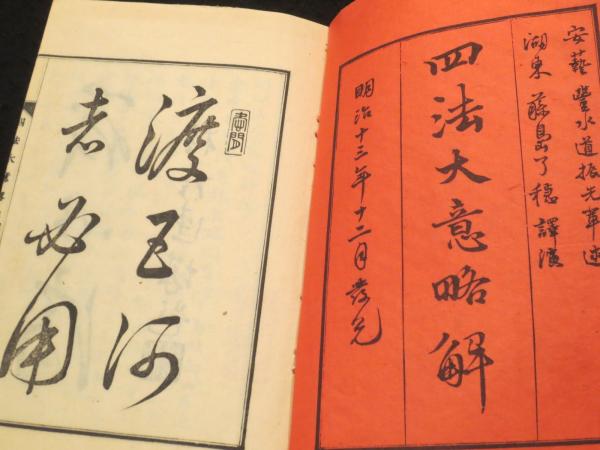 安藝 豐水道振先輩述
湖東 藤島了穏 譯演
四法大意略解
明治十三年十二月發兌
渡王河
者必用